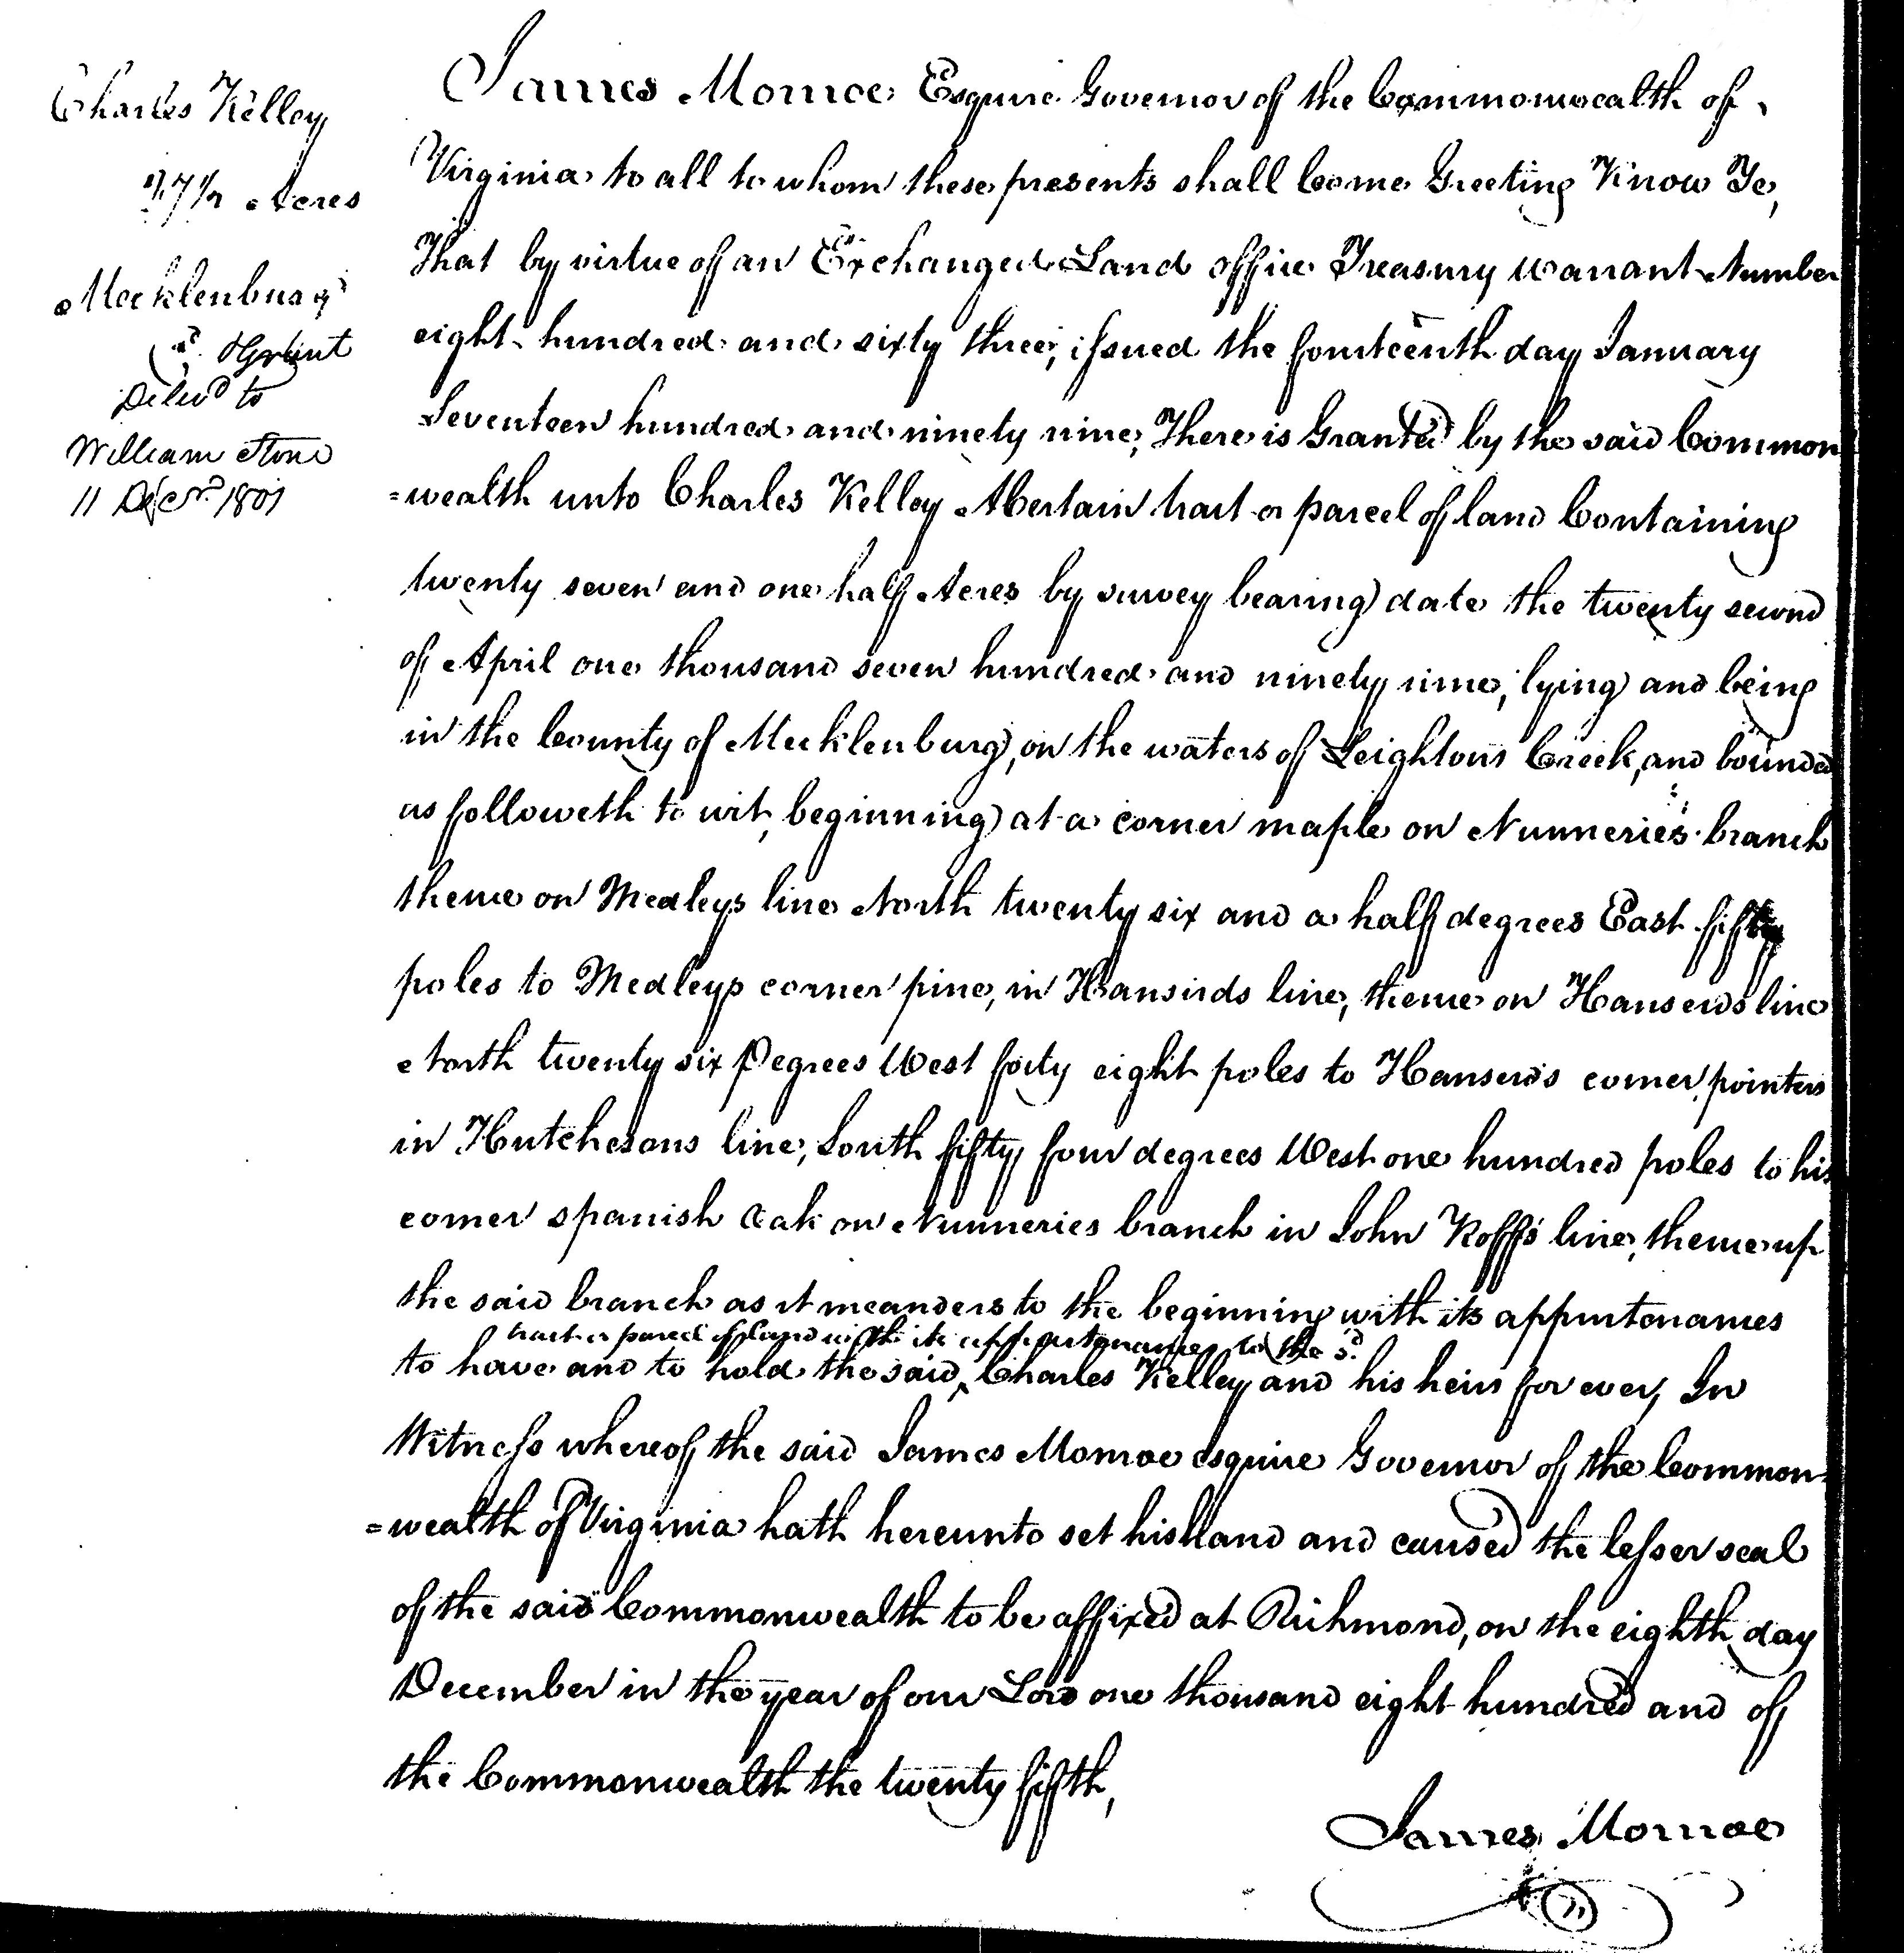 Charles Kelley
27 1/2 Acres
Mecklenburg
Delivd to
William Stone
11 Decr. 1801
James Monroe Esquire Governor of the Commonwealth of
Virginia to all to whom these presents shall Come Greeting Know Ye,
That by virtue of an Exchanged Land office Treasury warrant Number
eight hundred and sixty three, issued the fourteenth day January
Seventeen hundred and ninety nine, There is Granted by the said Common
=wealth unto Charles Kelley A Certain tract or parcel of land Containing
twenty seven and one half Acres by survey bearing date the twenty second
of April one thousand seven hundred and ninety nine, lying and being
in the County of Mecklenburg, on the waters of Leightons Creek, and bounded
as followeth to wit, beginning at a corner maple on Nunneries branch
thence on Medleys line North twenty six and a half degrees East fifty
poles to Medleys corner pine, in Hansirds line, thence on Hanserds line
North twenty six Degrees West forty eight poles to Hanserds corner pointers
in Hutchesons line, South fifty four degrees West one hundred poles to his
corner spanish Oak on Nunneries branch in John Roffs line, thence up
the said branch as it meanders to the beginning with its appurtenances
tract or parcel of land with its appurtenances to the sd.
to have and to hold the said ‸ Charles Kelley and his heirs for ever, In
Witness whereof the said James Monroe esquire Governor of the Common-
=wealth of Virginia hath hereunto set his hand and caused the lesser seal
of the said Commonwealth to be affixed at Richmond, on the eighth day
December in the year of our Lord one thousand eight hundred and of
the Commonwealth the twenty fifth,
James Monroe